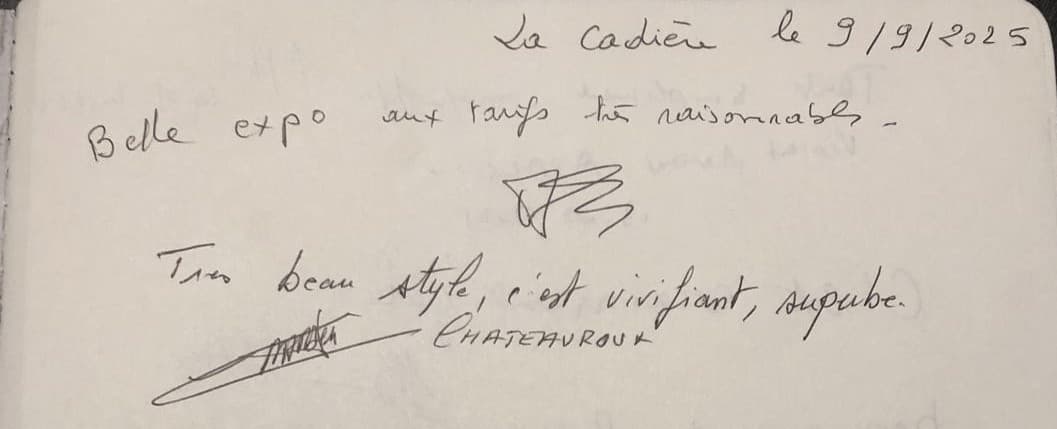 La Cadière le 9/9/2025
Belle expo aux tarifs très raisonnables.
Tres beau style, c'est vivifiant, superbe.
CHATEAUROUX